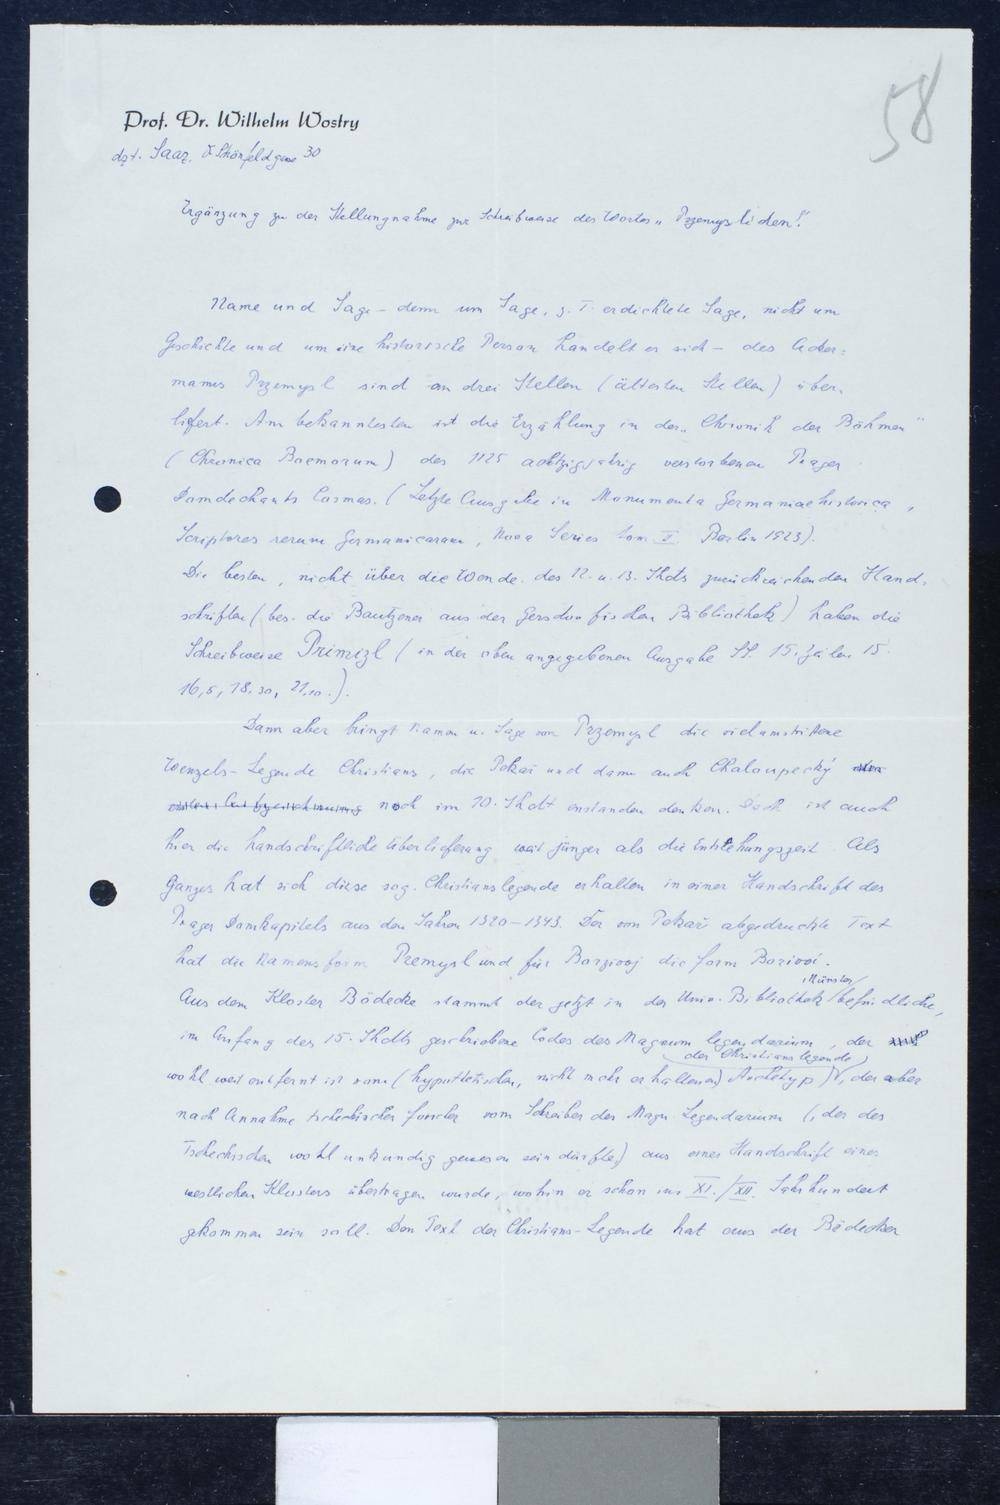 58
Prof. Dr. Wilhelm Wostry
dzt. Saaz, Schönfeldgasse 30
Ergänzung zu der Stellungnahme zur Schreibweise des Wortes „Przemysliden".
Name und Sage – denn um Sage, z. T. erdichtete Sage, nicht um
Geschichte und um eine historische Person handelt es sich – des Acker=
mannes Przemysl sind an drei Stellen (ältesten Stellen) über-
liefert. Am bekanntesten ist die Erzählung in der „Chronik der Böhmen"
(Chronica Boemorum) des 1125 achtzigjährig verstorbenen Prager
Domdechants Cosmas. (Letzte Ausgabe in Monumenta Germaniae historica,
Scriptores rerum Germanicarum, Nova Series tom II Berlin 1923).
Die besten, nicht über die Wende des 12. u. 13. Jhdts zurückreichenden Hand-
schriften (bes. die Bautzener aus der Gersdorfischen Bibliothek) haben die
Schreibweise Primizl (in der oben angegebenen Ausgabe SS. 15, Zeilen 15.
16,5, 18.30, 21.10.).
Dann aber bringt Namen u. Sage von Przemysl die vielumstrittene
Wenzels-Legende Christians, die Pekař und dann auch Chaloupecký
noch im 10. Jhdt enstanden denken. Doch ist auch
hier die handschriftliche Überlieferung weit jünger als die Entstehungszeit. Als
Ganzes hat sich diese sog. Christianslegende erhalten in einer Handschrift des
Prager Domkapitels aus den Jahren 1320–1343. Der von Pekař abgedruckte Text
hat die Namensform Premysl und für Borziwoj die Form Borivoi.
Aus dem Kloster Bödecke stammt der jetzt in der Univ. Bibliothek Münster befindliche,
im Anfang des 15. Jhdts geschriebene Codex des Magnum legendarium, der
wohl weit entfernt ist vom (hypothetischen, nicht mehr erhaltenen) Archetyp der Christianslegende, der aber
nach Annahme tschechischer Forscher vom Schreiber des Magn. Legendarium (, der des
Tschechischen wohl unkundig gewesen sein dürfte) aus einer Handschrift eines
westlichen Klosters übertragen wurde, wohin er schon im XI./XII. Jahrhundert
gekommen sein soll. Den Text der Christians-Legende hat aus der Bödecker